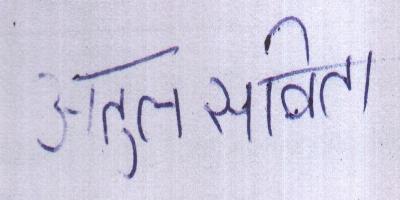 अतुल सविता